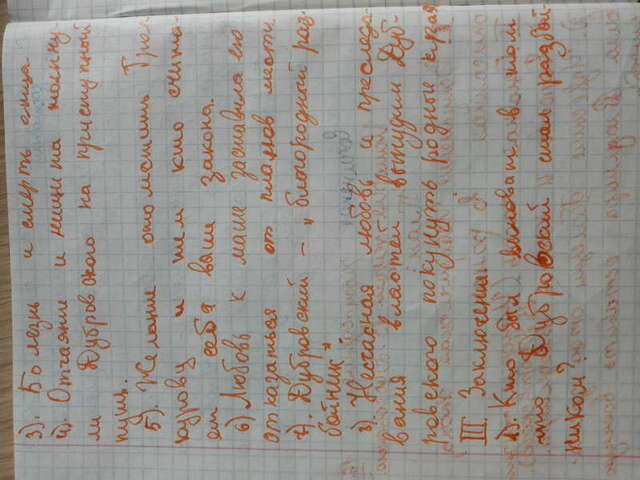 3). Болезнь и смерть отца
4). Отчаяние и нищета толкну-
ли Дубровского на преступный
путь.
5). Желание отомстить Трое-
курову и тем кто счита-
ет себя выше закона.
6) Любовь к Маше заставила его
отказаться от планов мести
7). Дубровский – "благородный раз-
бойник"
8). Несчасная любовь и преследо-
вания властей вынудили Дуб-
ровского покинуть родные края
III Заключение.
1). Кто был виноват в том
что Дубровский стал разбой-
ником?